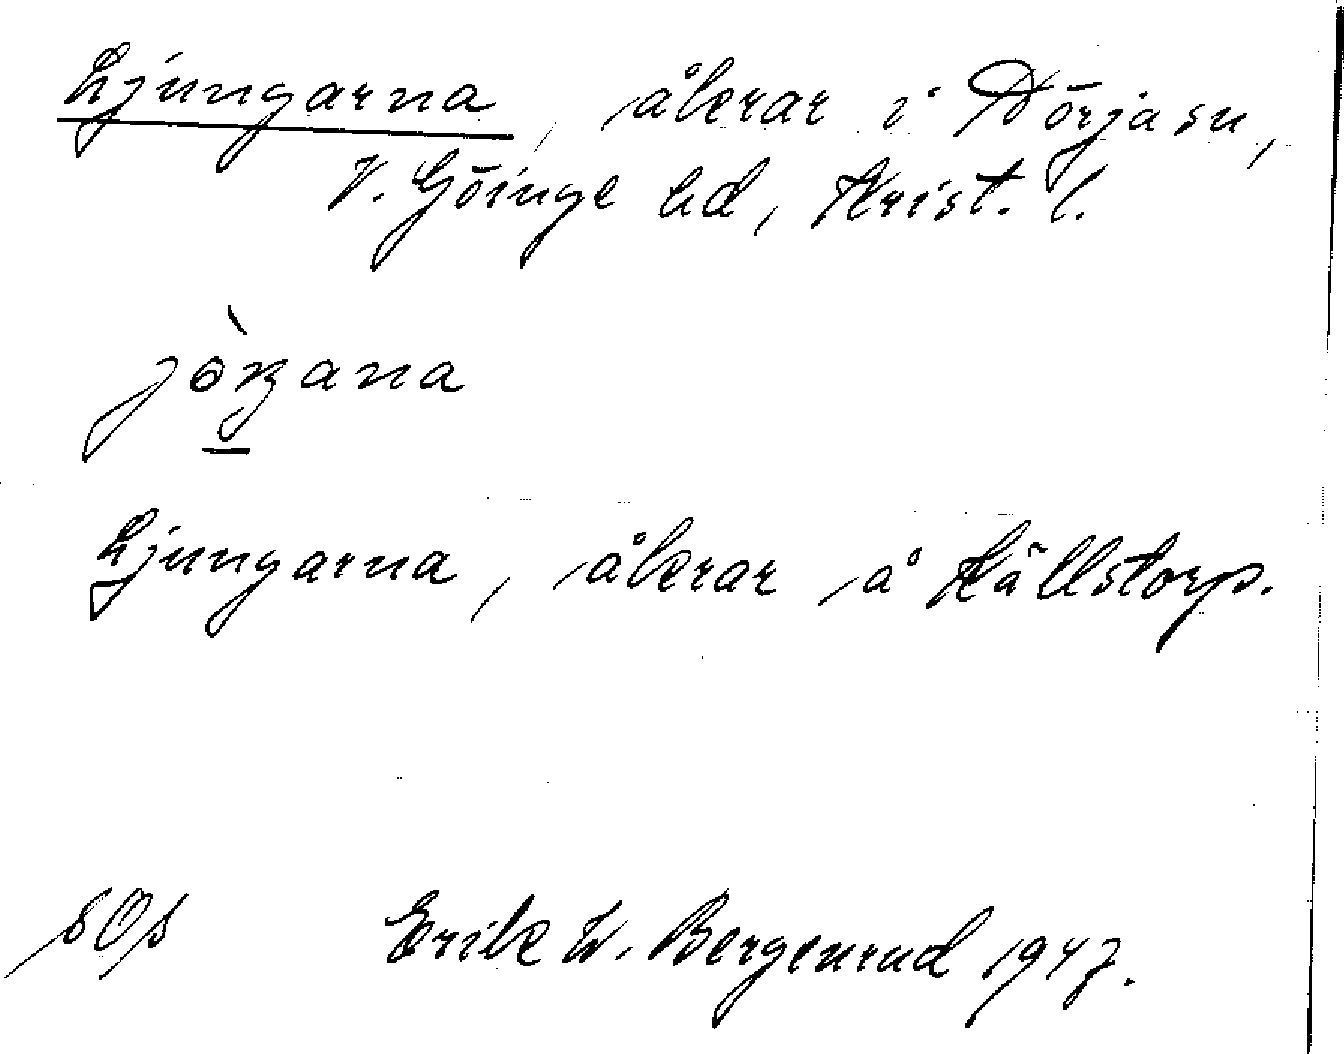 Ljungarna, åkrar i Nörja sn,
V. Göinge hd, Krist. l.
Ljungarna, åkrar å Källstorp.
Erik W. Bergenrud 1947.